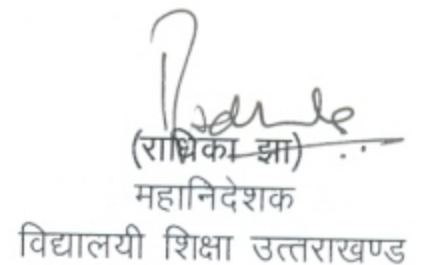 (राधिका झा)
महानिदेशक
विद्यालयी शिक्षा उत्तराखण्ड